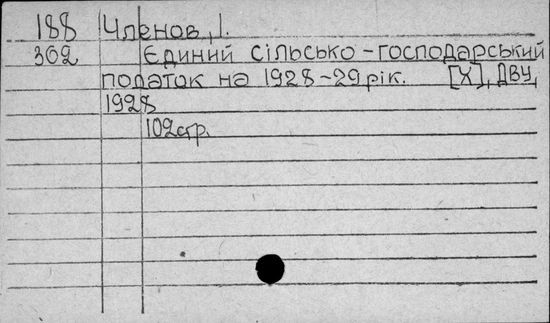 188 Членов, І.
302 Єдиний сільсько-господарський
податок на 1928-29 рік. [Х], ДВУ,
1928
102 стр.